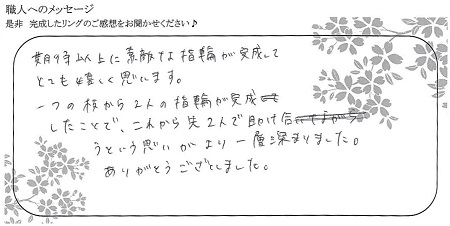 職人へのメッセージ
是非 完成したリングのご感想をお聞かせください♪
期待以上に素敵な指輪が完成して
とても嬉しく思います。
一つの枝から2人の指輪が完成
したことで、これから先2人で助け合
うという思いがより一層深まりました。
ありがとうございました。